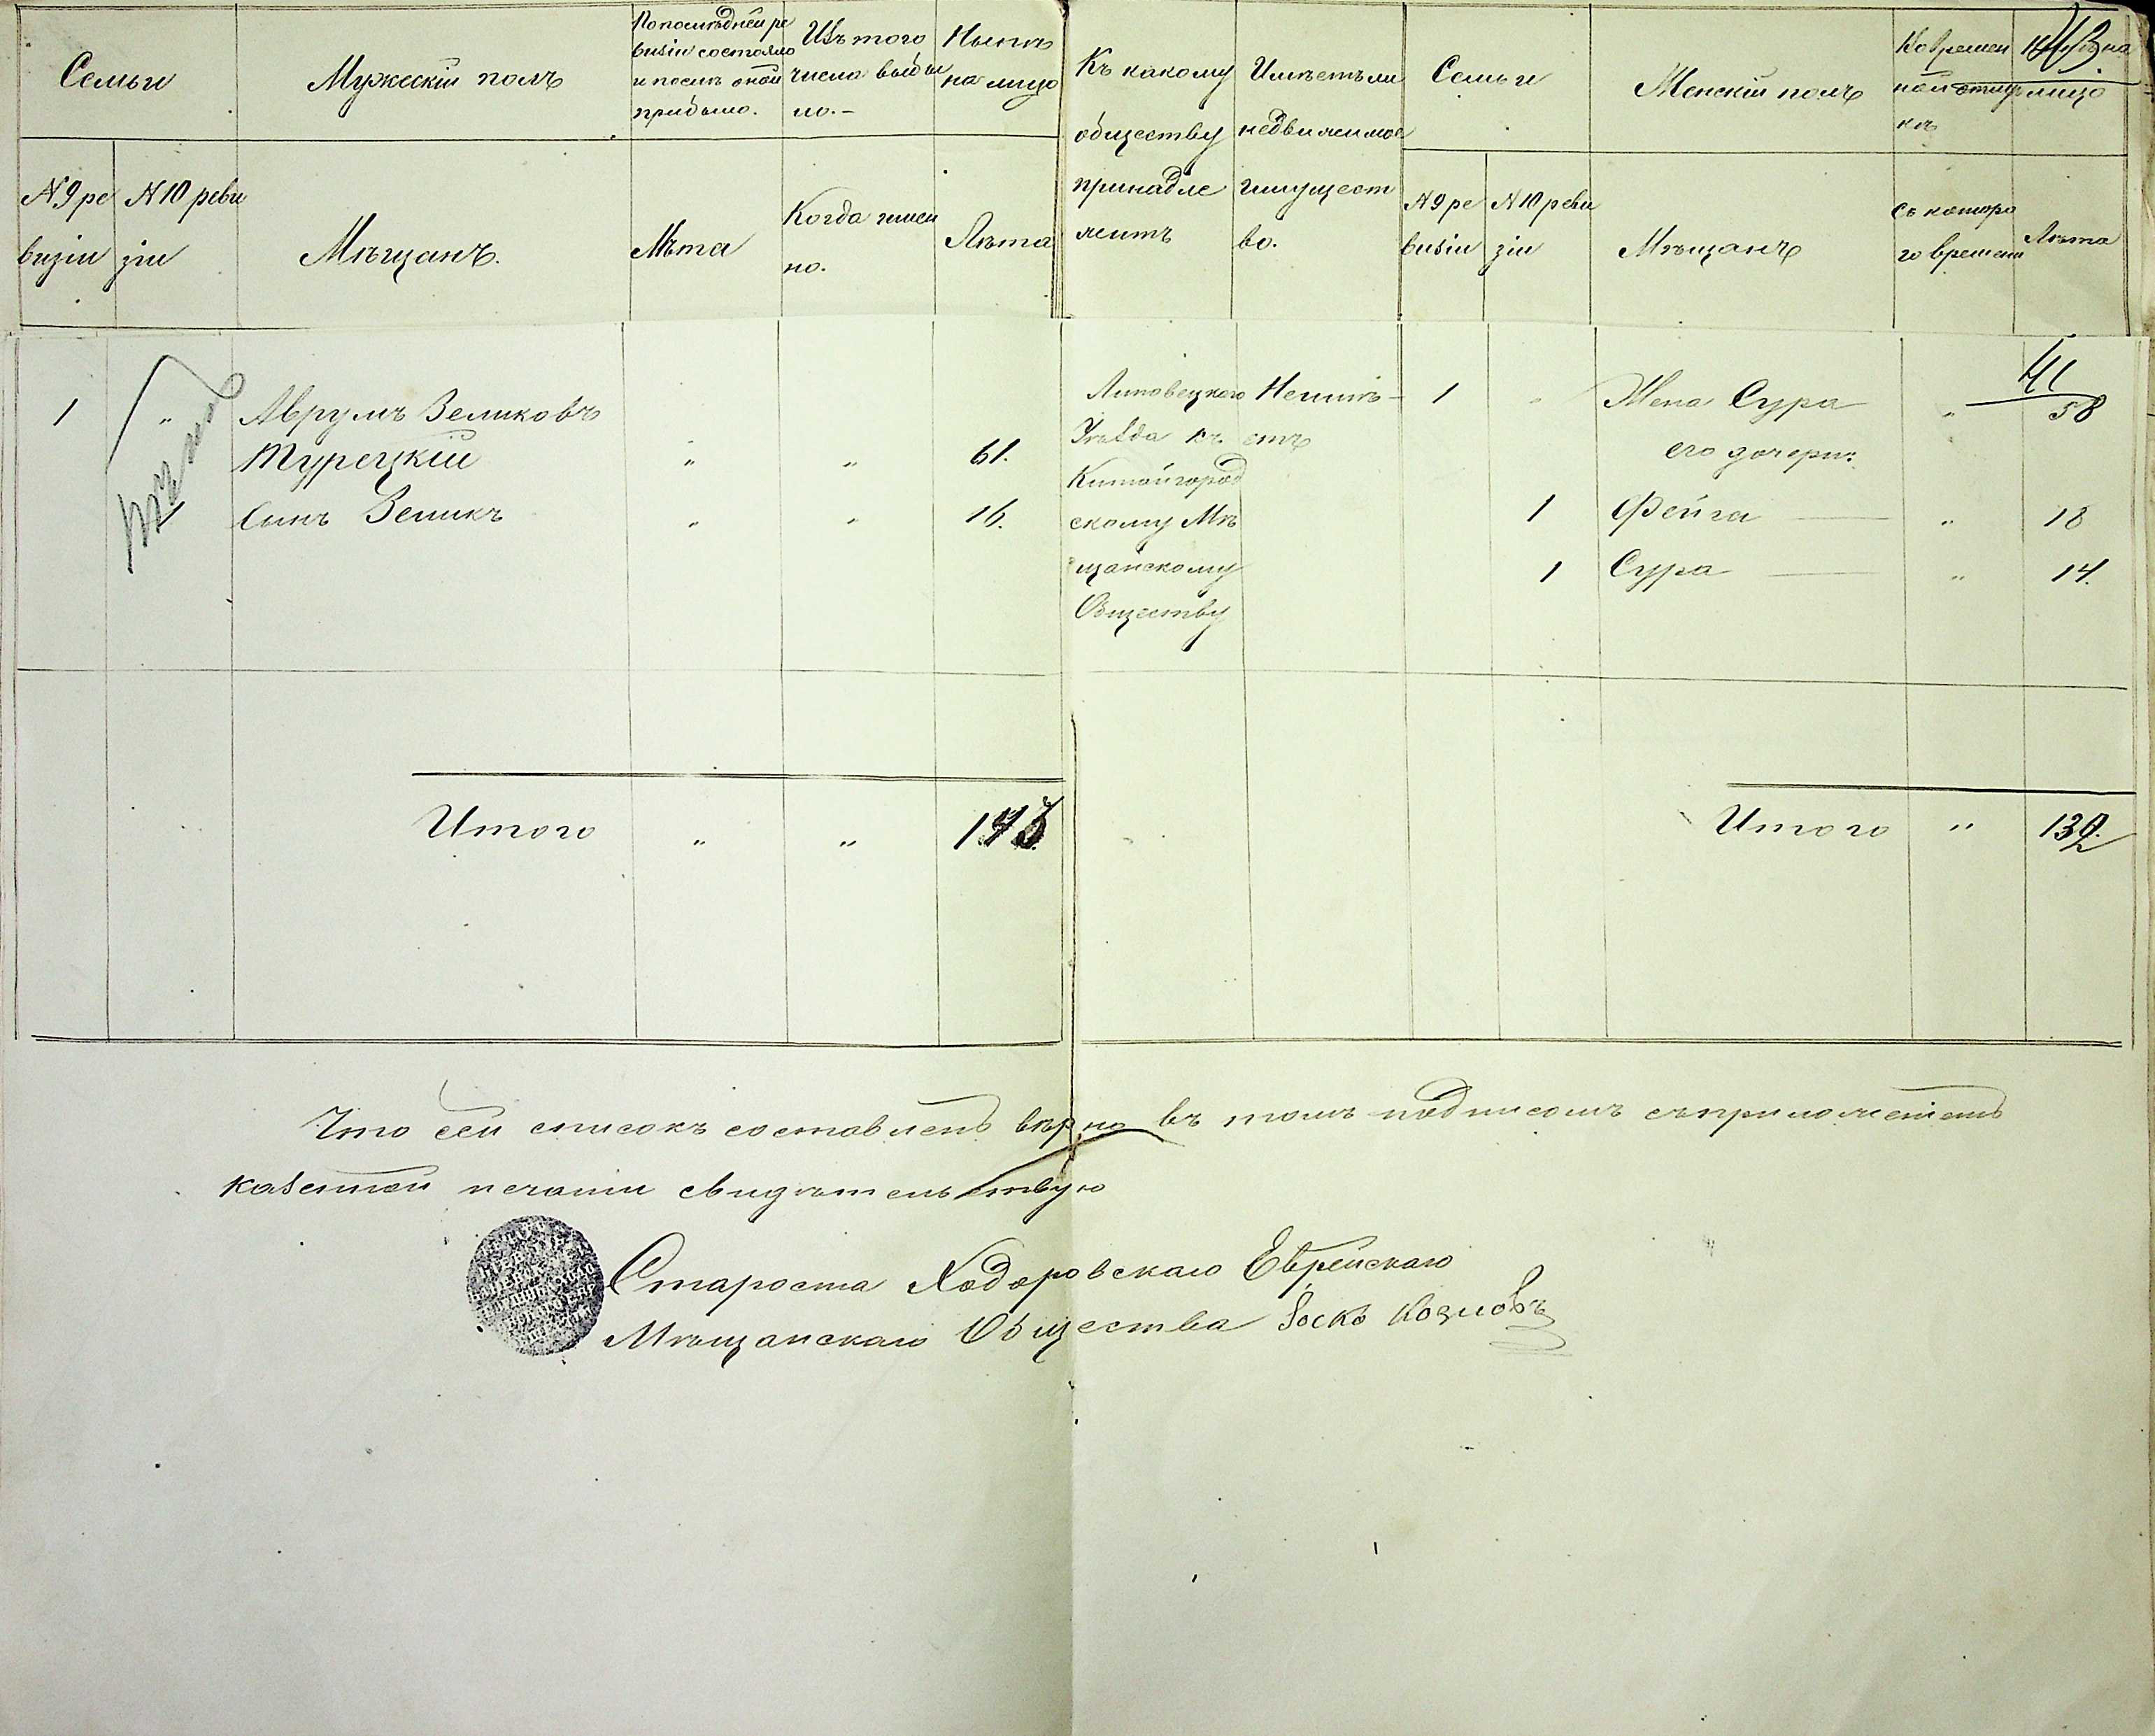 Семьи
Мужескій полъ
По послѣдней ре
визіи состояло
и послѣ оной
прибыло.
Изъ того
числа выбы
ло.-
Нынѣ
на лицо
Къ какому
обществу
принадле
житъ
Имѣетъ ли
недвижимое
имущест
во.
Семьи
Женскій полъ
Во времен
ной отлуч
кѣ
лицо
N 9 ре
визіи
N 10 реви
зіи
Мѣщанъ.
Лѣта
Когда имен
но.
Лѣта
N 9 ре
визіи
N 10 реви
зіи
Мѣщанъ
Съ которо
го времени
Лѣта
1 " Аврумъ Зеликовъ
Турецкій " " 61.
Сынъ Зеликъ " " 16.
Липовецкого
Уѣзда къ
Китайгород
скому Мѣ
щанскому
Обществу
Неимѣ-
етъ
41
1 " Жена Сура " 58
его дочери:
1 Фейга " 18
1 Сура " 14.
Итого " "
Итого " 132
Что сей списокъ составленъ вѣрно въ томъ подписомъ съ приложеніемъ
казенной печати свидѣтельствую
Староста Ходоровскаго Еврейскаго
Мѣщанскаго Общества Іоско Козловъ